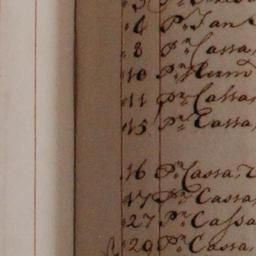 6 Pr. Jan
8 Pr. Cassa
10 Pr.
11 Pr. Cassa
15 Pr. Cassa
16 Pr. Cassa
17 Pr. Cassa
27 Pr. Cassa
29 Pr. Cassa